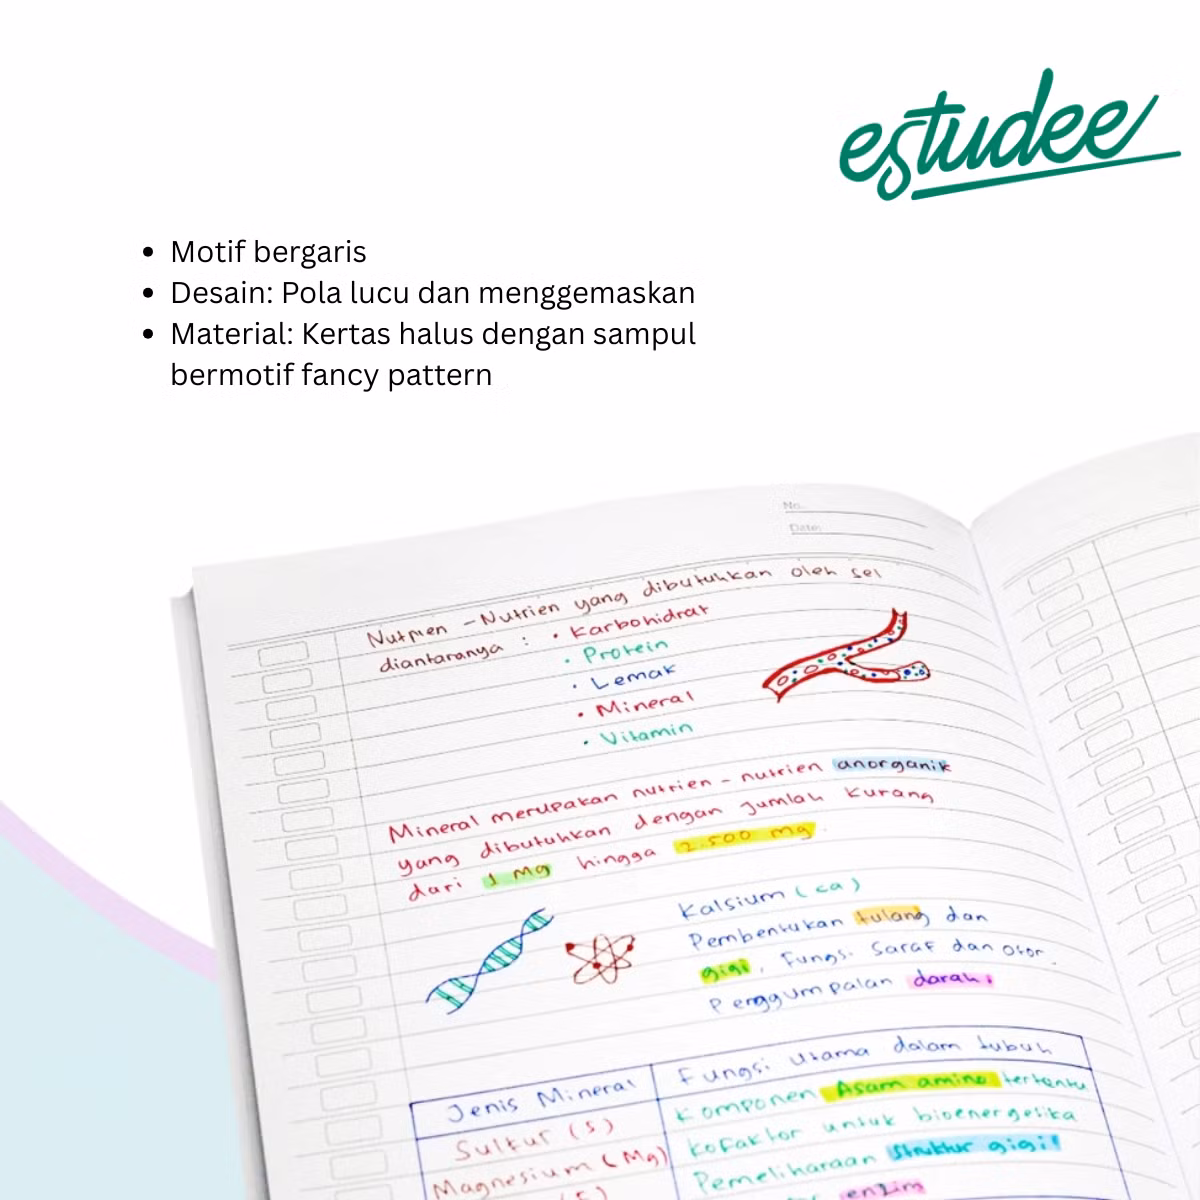 estudee
• Motif bergaris
• Desain: Pola lucu dan menggemaskan
• Material: Kertas halus dengan sampul
bermotif fancy pattern
No.
Date:
Nutrien - Nutrien yang dibutuhkan oleh sel
diantaranya : • Karbohidrat
• Protein
• Lemak
• Mineral
• Vitamin
Mineral merupakan nutrien - nutrien anorganik
yang dibutuhkan dengan jumlah kurang
dari 1 Mg hingga 2.500 mg.
Kalsium (ca)
Pembentukan tulang dan
gigi, Fungsi Saraf dan otot.
Penggumpalan darah
Jenis Mineral
Fungsi Utama dalam tubuh
Sulfur (S)
Komponen Asam amino tertentu
Magnesium (Mg)
Kofaktor untuk bioenergetika
Pemeliharaan Struktur gigi
enzim